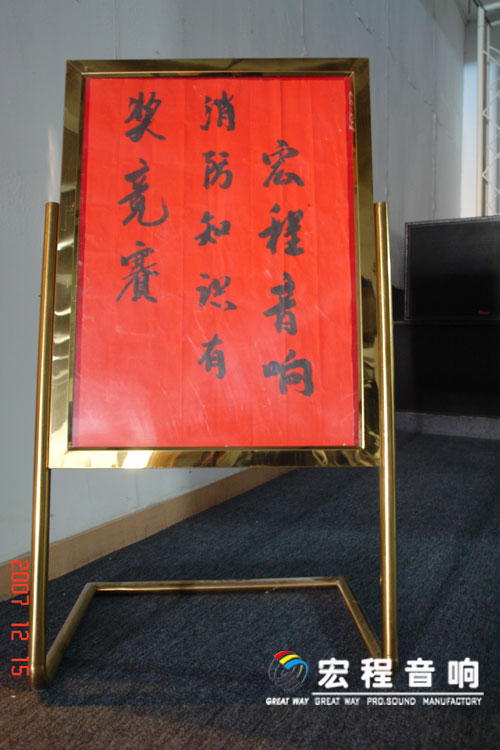 宏程音响
消防知识有
奖竞赛
2007 12 15
宏程音响
GREAT WAY GREAT WAY PRO.SOUND MANUFACTORY